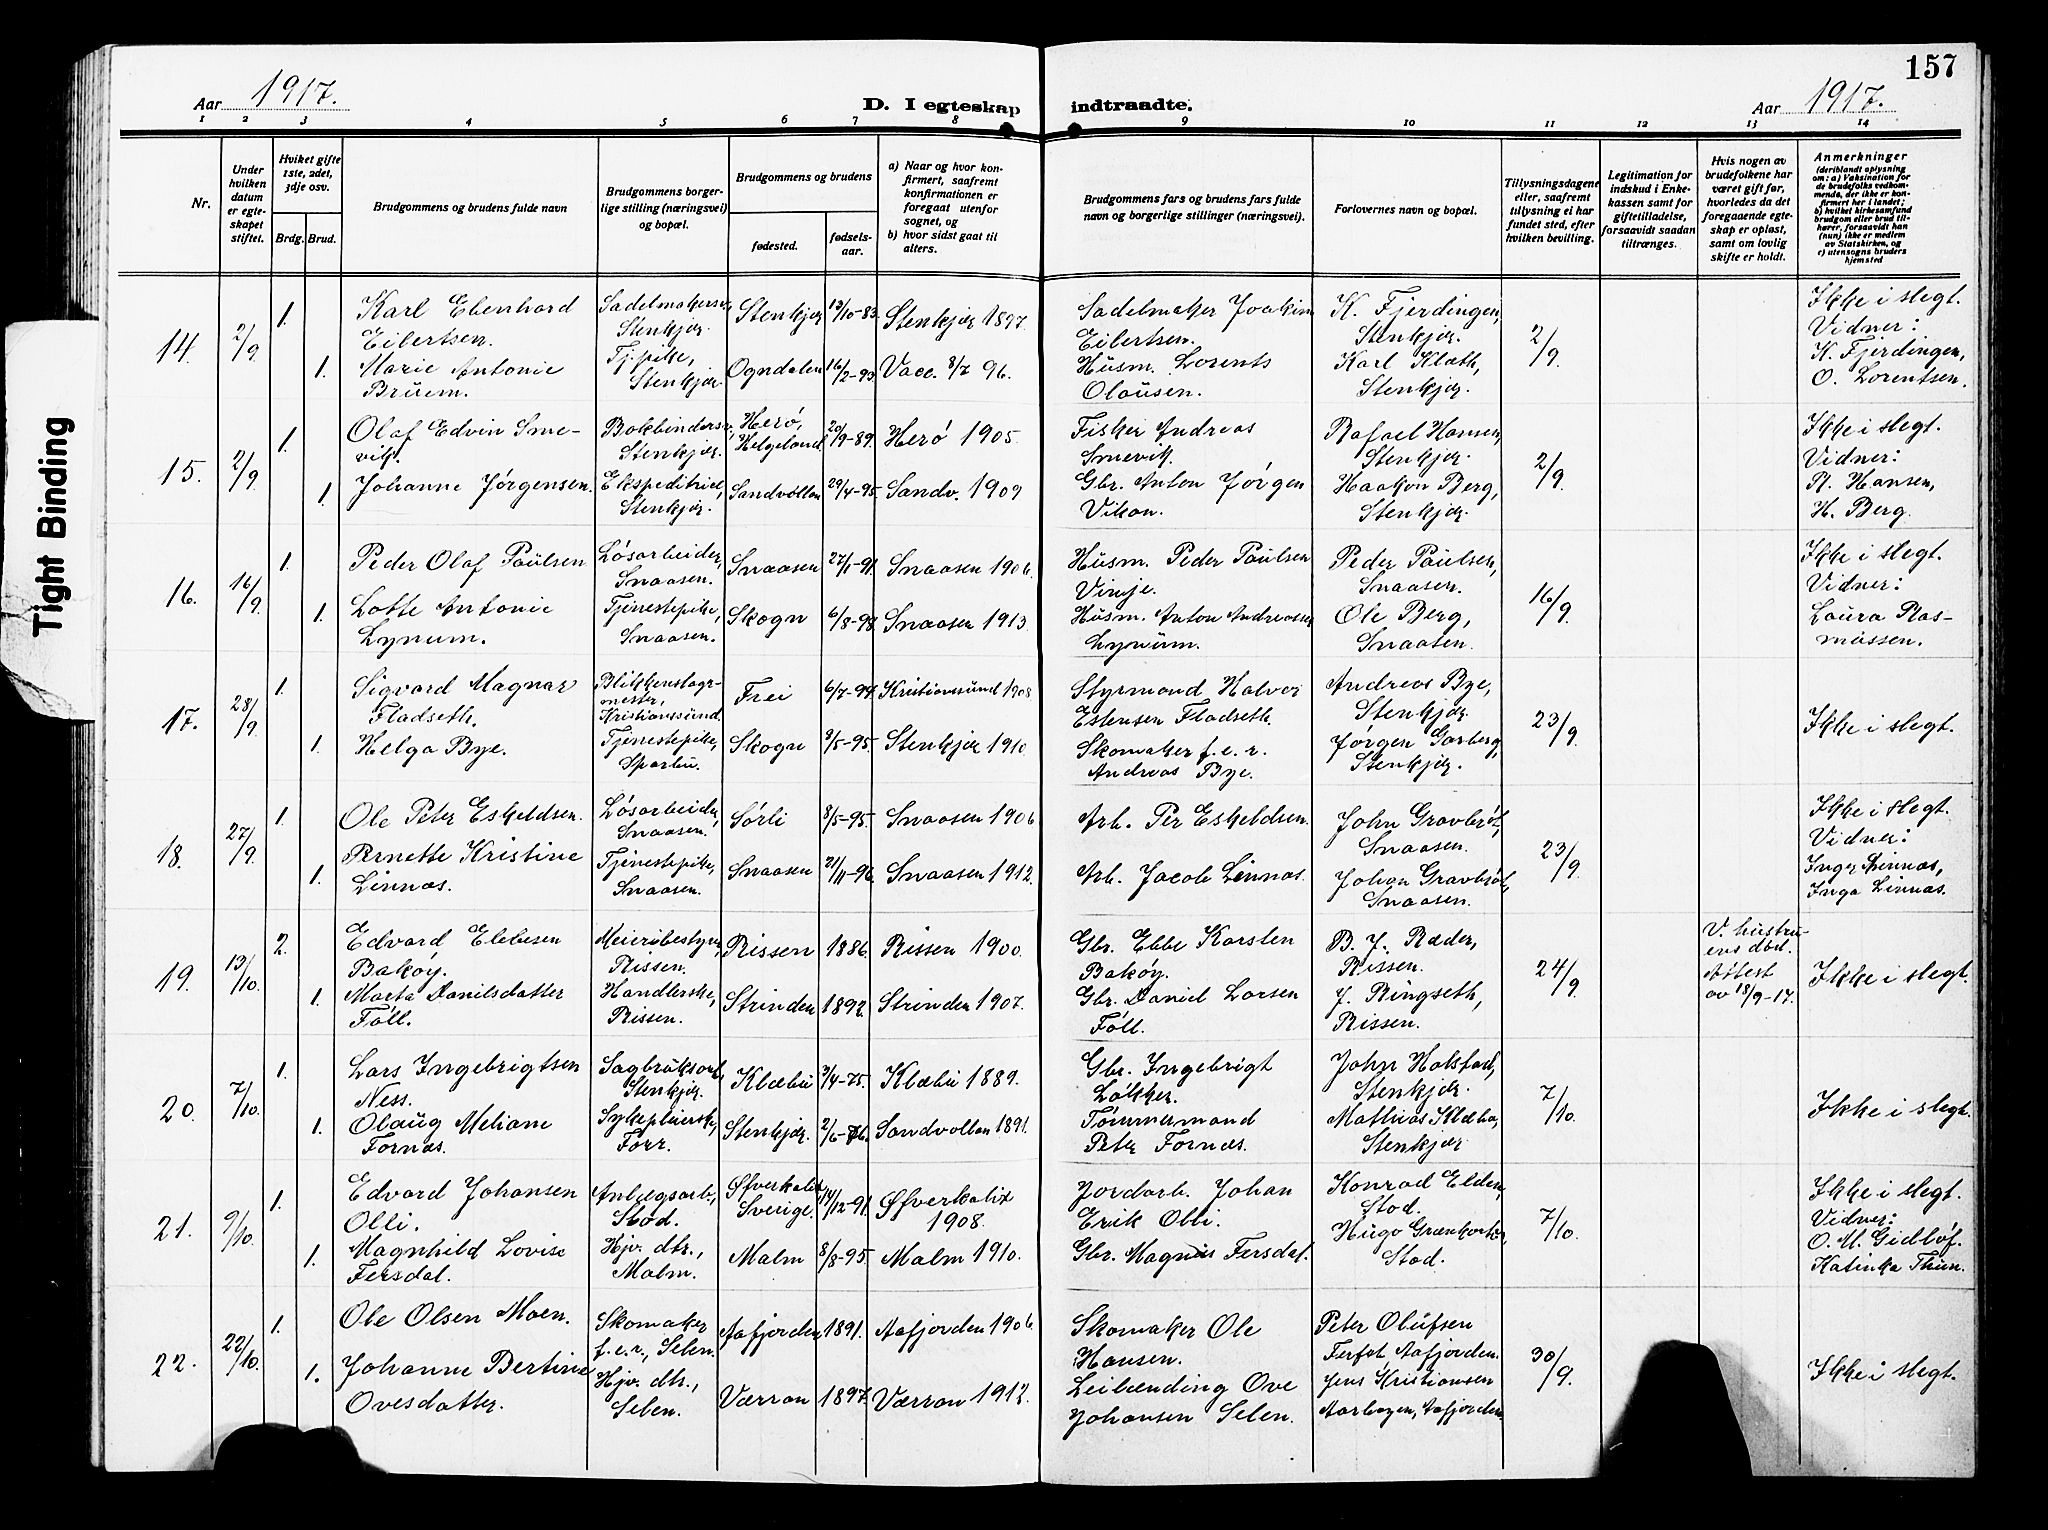 157
Aar 1917.
D. I egteskap indtraadte.
Aar 1917.
1 2 3 4 5 6 7 8 9 10 11 12 13 14
Nr.
Under hvilken datum er egteskapet stiftet.
Hviket gifte 1ste, 2det, 3dje osv.
Brdg. Brud.
Brudgommens og brudens fulde navn
Brudgommens borgerlige stilling (næringsvei) og bopæl.
Brudgommens og brudens
fødested.
fødselsaar.
a) Naar og hvor konfirmert, saafremt konfirmationen er foregaat utenfor sognet, og
b) hvor sidst gaat til alters.
Brudgommens fars og brudens fars fulde navn og borgerlige stillinger (næringsvei).
Forlovernes navn og bopæl.
Tillysningsdagene eller, saafremt tillysning ei har fundet sted, efter hvilken bevilling.
Legitimation for indskud i Enkekassen samt for giftetilladelse, forsaavidt saadan tiltrænges.
Hvis nogen av brudefolkene har været gift før, hvorledes da det foregaaende egteskap er opløst, samt om lovlig skifte er holdt.
Anmerkninger (deriblandt oplysning om: a) Vaksination for de brudefolks vedkommende, der ikke er konfirmert her i landet; b) hvilket kirkesamfund brudgom eller brud tilhører, forsaavidt han (hun) ikke er medlem av Statskirken, og c) utensogns bruders hjemsted
14. 2/9 1. Karl Ebenhard Eilertsen. Sadelmakersv, Stenkjær. Stenkjær 13/10-83. Stenkjær 1897. Sadelmaker Joakim Eilertsen. K. Fjerdingen, Stenkjær. 2/9 Ikke i slegt. Vidner: K. Fjerdingen, O. Lorentsen.
1. Marie Antonie Brüem. Tj.pike, Stenkjær. Ogndalen 16/2-93 Vacc. 8/7 96. Hüsm. Lorents Olaüsen. Karl Klæth, Stenkjær.
15. 2/9 1. Olaf Edvin Smevik. Bokbindersv, Stenkjær. Herø, Helgeland 20/9-89. Herø 1905. Fisker Andreas Smevik. Rafael Hansen, Stenkjær. 2/9 Ikke i slegt. Vidner: R. Hansen, H. Berg.
1. Johanne Jørgensen. Ekspeditrice, Stenkjær. Sandvollan 29/4-95. Sandv. 1909 Gbr. Anton Jørgen Vikan. Haakon Berg, Stenkjær.
16. 16/9 1. Peder Olaf Paülsen Løsarbeider, Snaasen. Snaasen 27/1-91. Snaasen 1906. Hüsm. Peder Paülsen Vinje. Peder Paülsen, Snaasen. 16/9 Ikke i slegt. Vidner: Laura Rasmüssen.
1. Lotte Antonie Lynum. Tjenestepike, Snaasen. Skogn 6/8-98. Snaasen 1913. Hüsm. Anton Andreassen Lynüm. Ole Berg, Snaasen.
17. 28/9 1. Sigvard Magnar Fladseth. Blikkenslagrmester, Kristianssünd. Frei 6/7-94 Kristianssünd 1908 Styrmand Halvor Estensen Fladseth. Andreas Bye, Stenkjær. 23/9 Ikke i slegt.
1. Helga Bye. Tjenestepike, Sparbu. Skogn 9/5-95. Stenkjær 1910. Skomaker f.e.r. Andreas Bye. Jørgen Garberg, Stenkjær.
18. 27/9 1. Ole Peter Eskeldsen. Løsarbeider, Snaasen. Sørli 8/5-95. Snaasen 1906 Arb. Per Eskeldsen. John Gravbrøt, Snaasen. 23/9 Ikke i slegt. Vidner: Inger Linnas, Inga Linnas.
1. Pernette Kristine Linnas. Tjenestepike, Snaasen. Snaasen 21/11-96. Snaasen 1912. Arb. Jacob Linnas. Johan Gravbrøt, Snaasen.
19. 13/10. 2. Edvard Ebbesen Bakøy. Meieribestyrer, Rissen. Rissen 1886. Rissen 1900. Gbr. Ebbe Karsten Bakøy. B. J. Ræder, Rissen. 24/9 V. hustruens død. Attest av 18/9-17. Ikke i slegt.
1. Marta Danilsdatter Föll. Handlerske, Rissen. Strinden 1892. Strinden 1907. Gbr. Daniel Larsen Föll. J. Ringseth, Rissen.
20. 7/10. 1. Lars Ingebrigtsen Ness. Sagbrüksarb, Stenkjær. Klæbü 3/4-75. Klæbü 1889. Gbr. Ingebrigt Løkker. John Halstad, Stenkjær. 7/10. Ikke i slegt.
1. Olaüg Meliane Fornæs. Sykepleierske, Forr. Stenkjær. 2/6-76. Sandvollan 1891. Tømmermand Peter Fornæs. Mathias Stæha, Stenkjær
21. 9/10. 1. Edvard Johansen Olli. Anlægsarb., Stod. Øfverkalix Sverige. 14/12-91. Øfverkalix 1908. Jordarb. Johan Erik Olli. Konrad Elden, Stod. 7/10. Ikke i slegt. Vidner: O. M. Gidløf. Katinka Thün.
1. Magnhild Lovise Fersdal. Hjv. dtr., Malm. Malm 8/8-95. Malm 1910. Gbr. Magnüs Fersdal. Hügo Stod.
22. 22/10. 1. Ole Olsen Moen. Skomaker f.e.r., Selen. Aafjorden 1891. Aafjorden 1906 Skomaker Ole Hansen. Peter Olüfsen Aafjorden. 30/9. Ikke i slegt.
1. Johanne Bertine Ovesdatter. Hjv. dtr., Selen. Værran 1897. Værran 1912. Leilænding Ove Johansen Selen. Jens Kristiansen Aafjorden.
Tight Binding